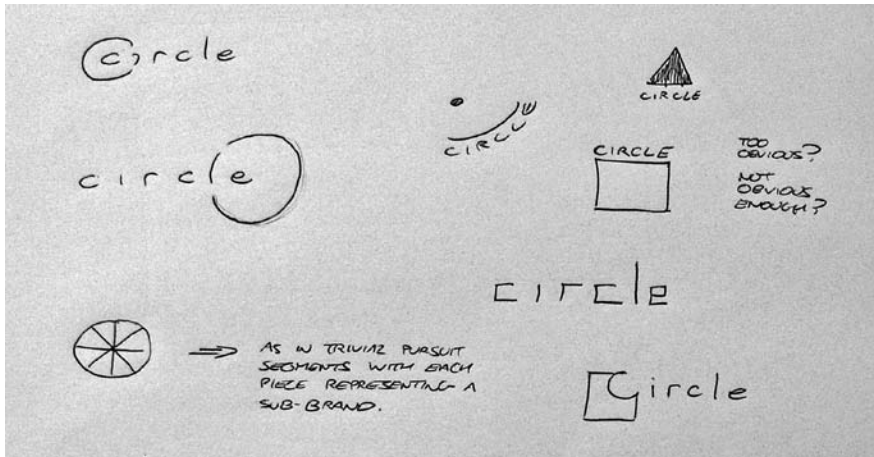 circle
circle
CIRCLE
CIRCLE
CIRCLE
TOO
OBVIOUS?
NOT
OBVIOUS
ENOUGH?
circle
AS IN TRIVIAL PURSUIT
SEGMENTS WITH EACH
PIECE REPRESENTING A
SUB-BRAND.
circle